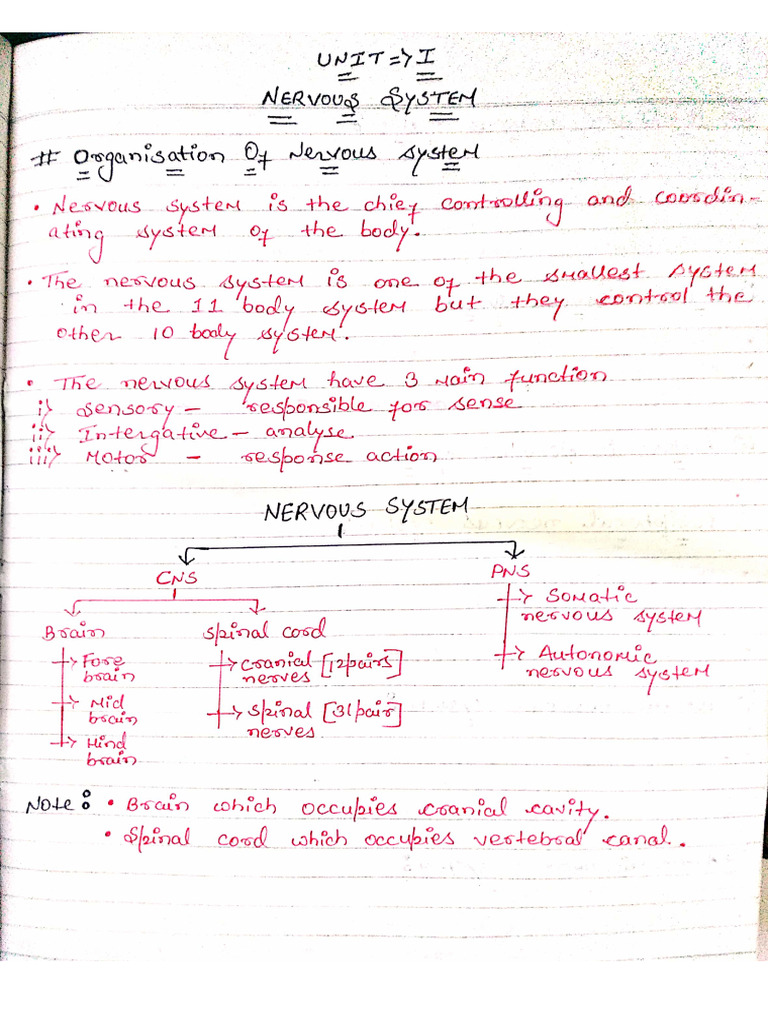 UNIT => I
NERVOUS SYSTEM
# Organisation Of Nervous system
• Nervous system is the chief controlling and coordin-
ating system of the body.
• The nervous system is one of the smallest system
in the 11 body system but they control the
other 10 body system.
• The nervous system have 3 main function
i) Sensory - responsible for sense
ii) Intergative - analyse
iii) Motor - response action
NERVOUS SYSTEM
CNS PNS
Brain Spinal cord
→ Somatic
nervous system
→ Autonomic
nervous system
→ Fore
brain
→ Mid
brain
→ Hind
brain
→ cranial [12pairs]
nerves
→ spinal [31pair]
nerves
Note: • Brain which occupies cranial cavity.
• Spinal cord which occupies vertebral canal.